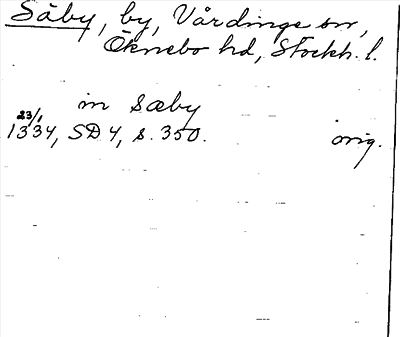 Säby, by, Vårdinge sn,
Öknebo hd, Stockh. l.
in Sæby
23/1
1334, SD 4, s. 350. orig.